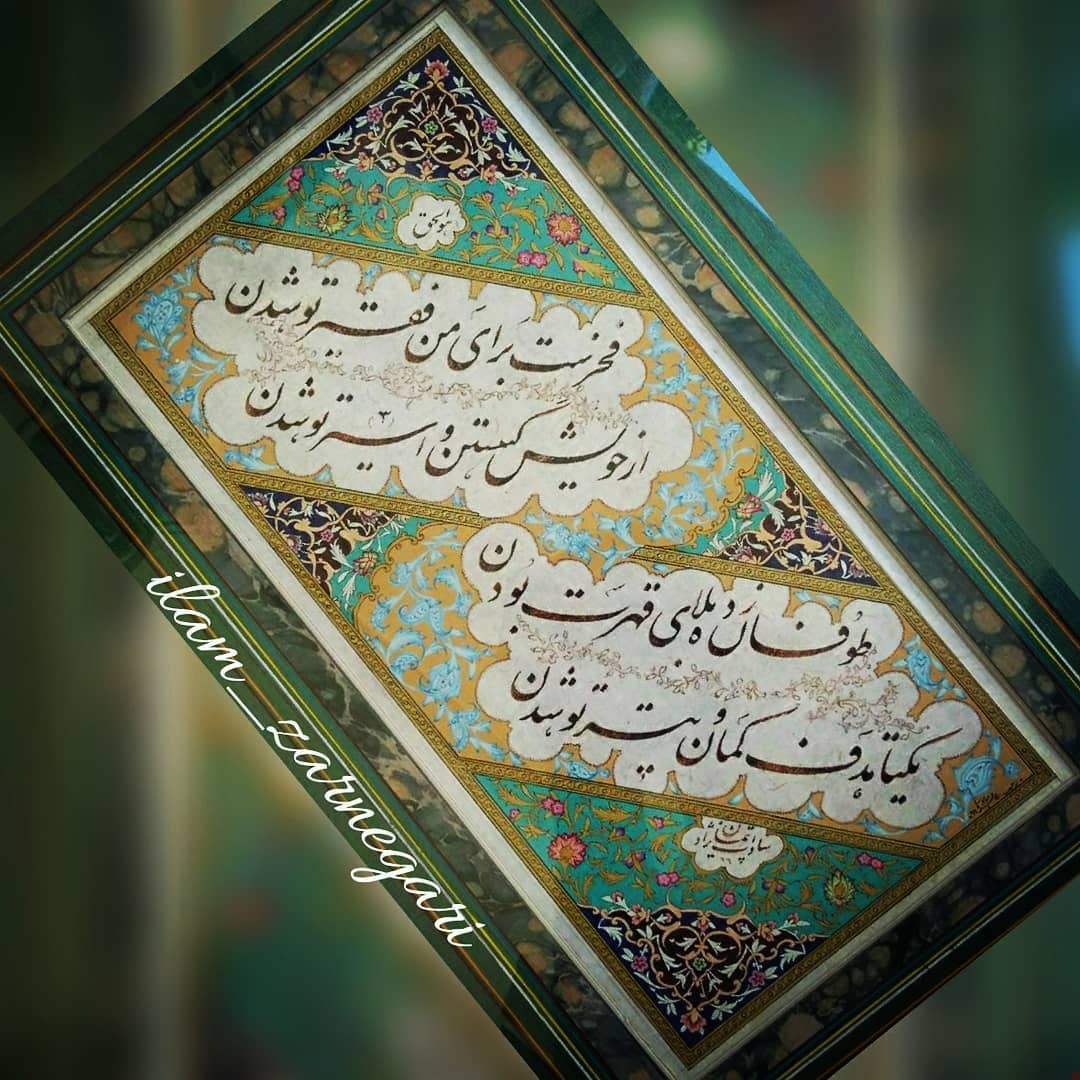 هوالحق
فخرست برای من فقیر تو شدن
از خویش گسستن و اسیر تو شدن
طوفان زده بلای قهرت بودن
یکتا هدف کمان و تیر تو شدن
ilam_zarnegari